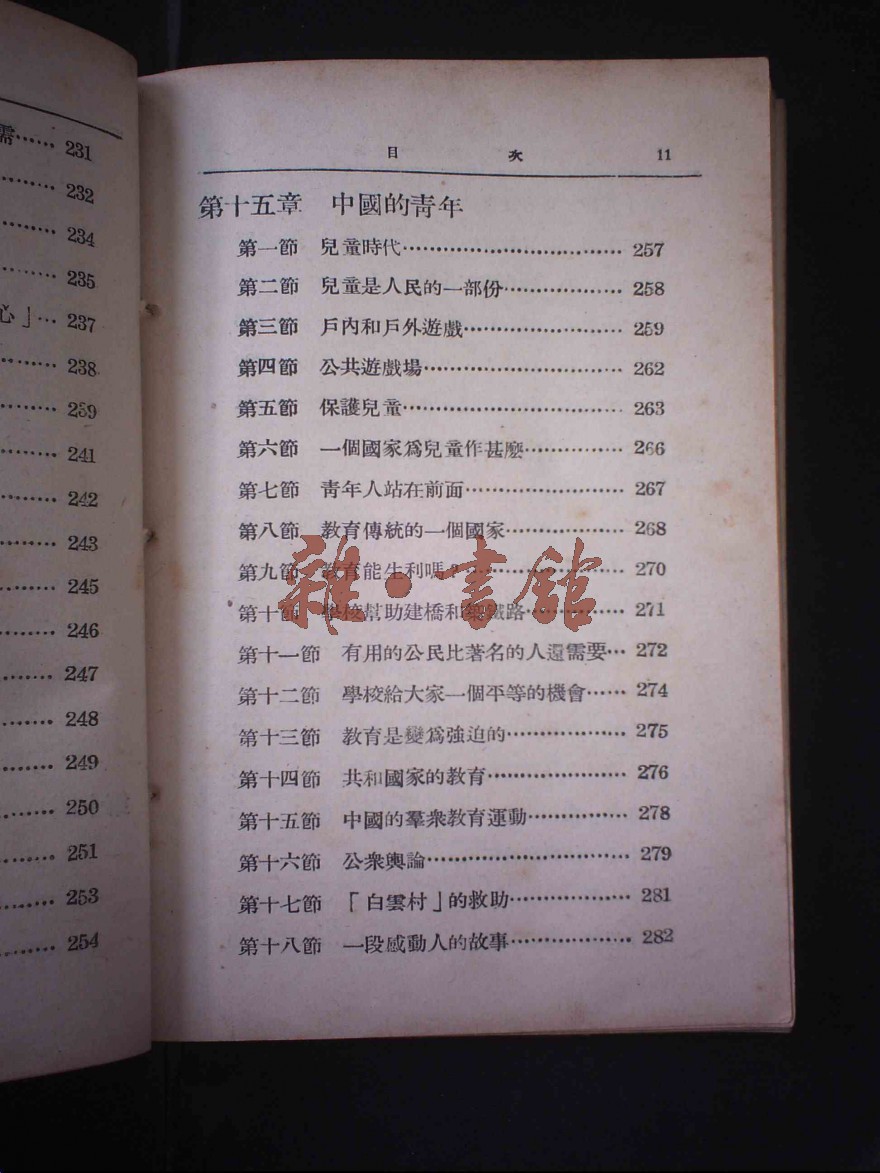 需…… 231
…… 232
…… 234
…… 235
心」… 237
…… 238
…… 239
…… 241
…… 242
…… 243
…… 245
…… 246
…… 247
…… 248
…… 249
…… 250
…… 251
…… 253
…… 254
目 次 11
第十五章 中國的靑年
第一節 兒童時代…… 257
第二節 兒童是人民的一部份…… 258
第三節 戶內和戶外遊戲…… 259
第四節 公共遊戲場…… 262
第五節 保護兒童…… 263
第六節 一個國家爲兒童作甚麽…… 266
第七節 靑年人站在前面…… 267
第八節 敎育傳統的一個國家…… 268
第九節 敎育能生利嗎?…… 270
第十節 學校幫助建橋和築鐵路…… 271
第十一節 有用的公民比著名的人還需要… 272
第十二節 學校給大家一個平等的機會…… 274
第十三節 敎育是變爲強迫的…… 275
第十四節 共和國家的敎育…… 276
第十五節 中國的羣衆敎育運動…… 278
第十六節 公衆輿論…… 279
第十七節 「白雲村」的救助…… 281
第十八節 一段感動人的故事…… 282
雜·書館